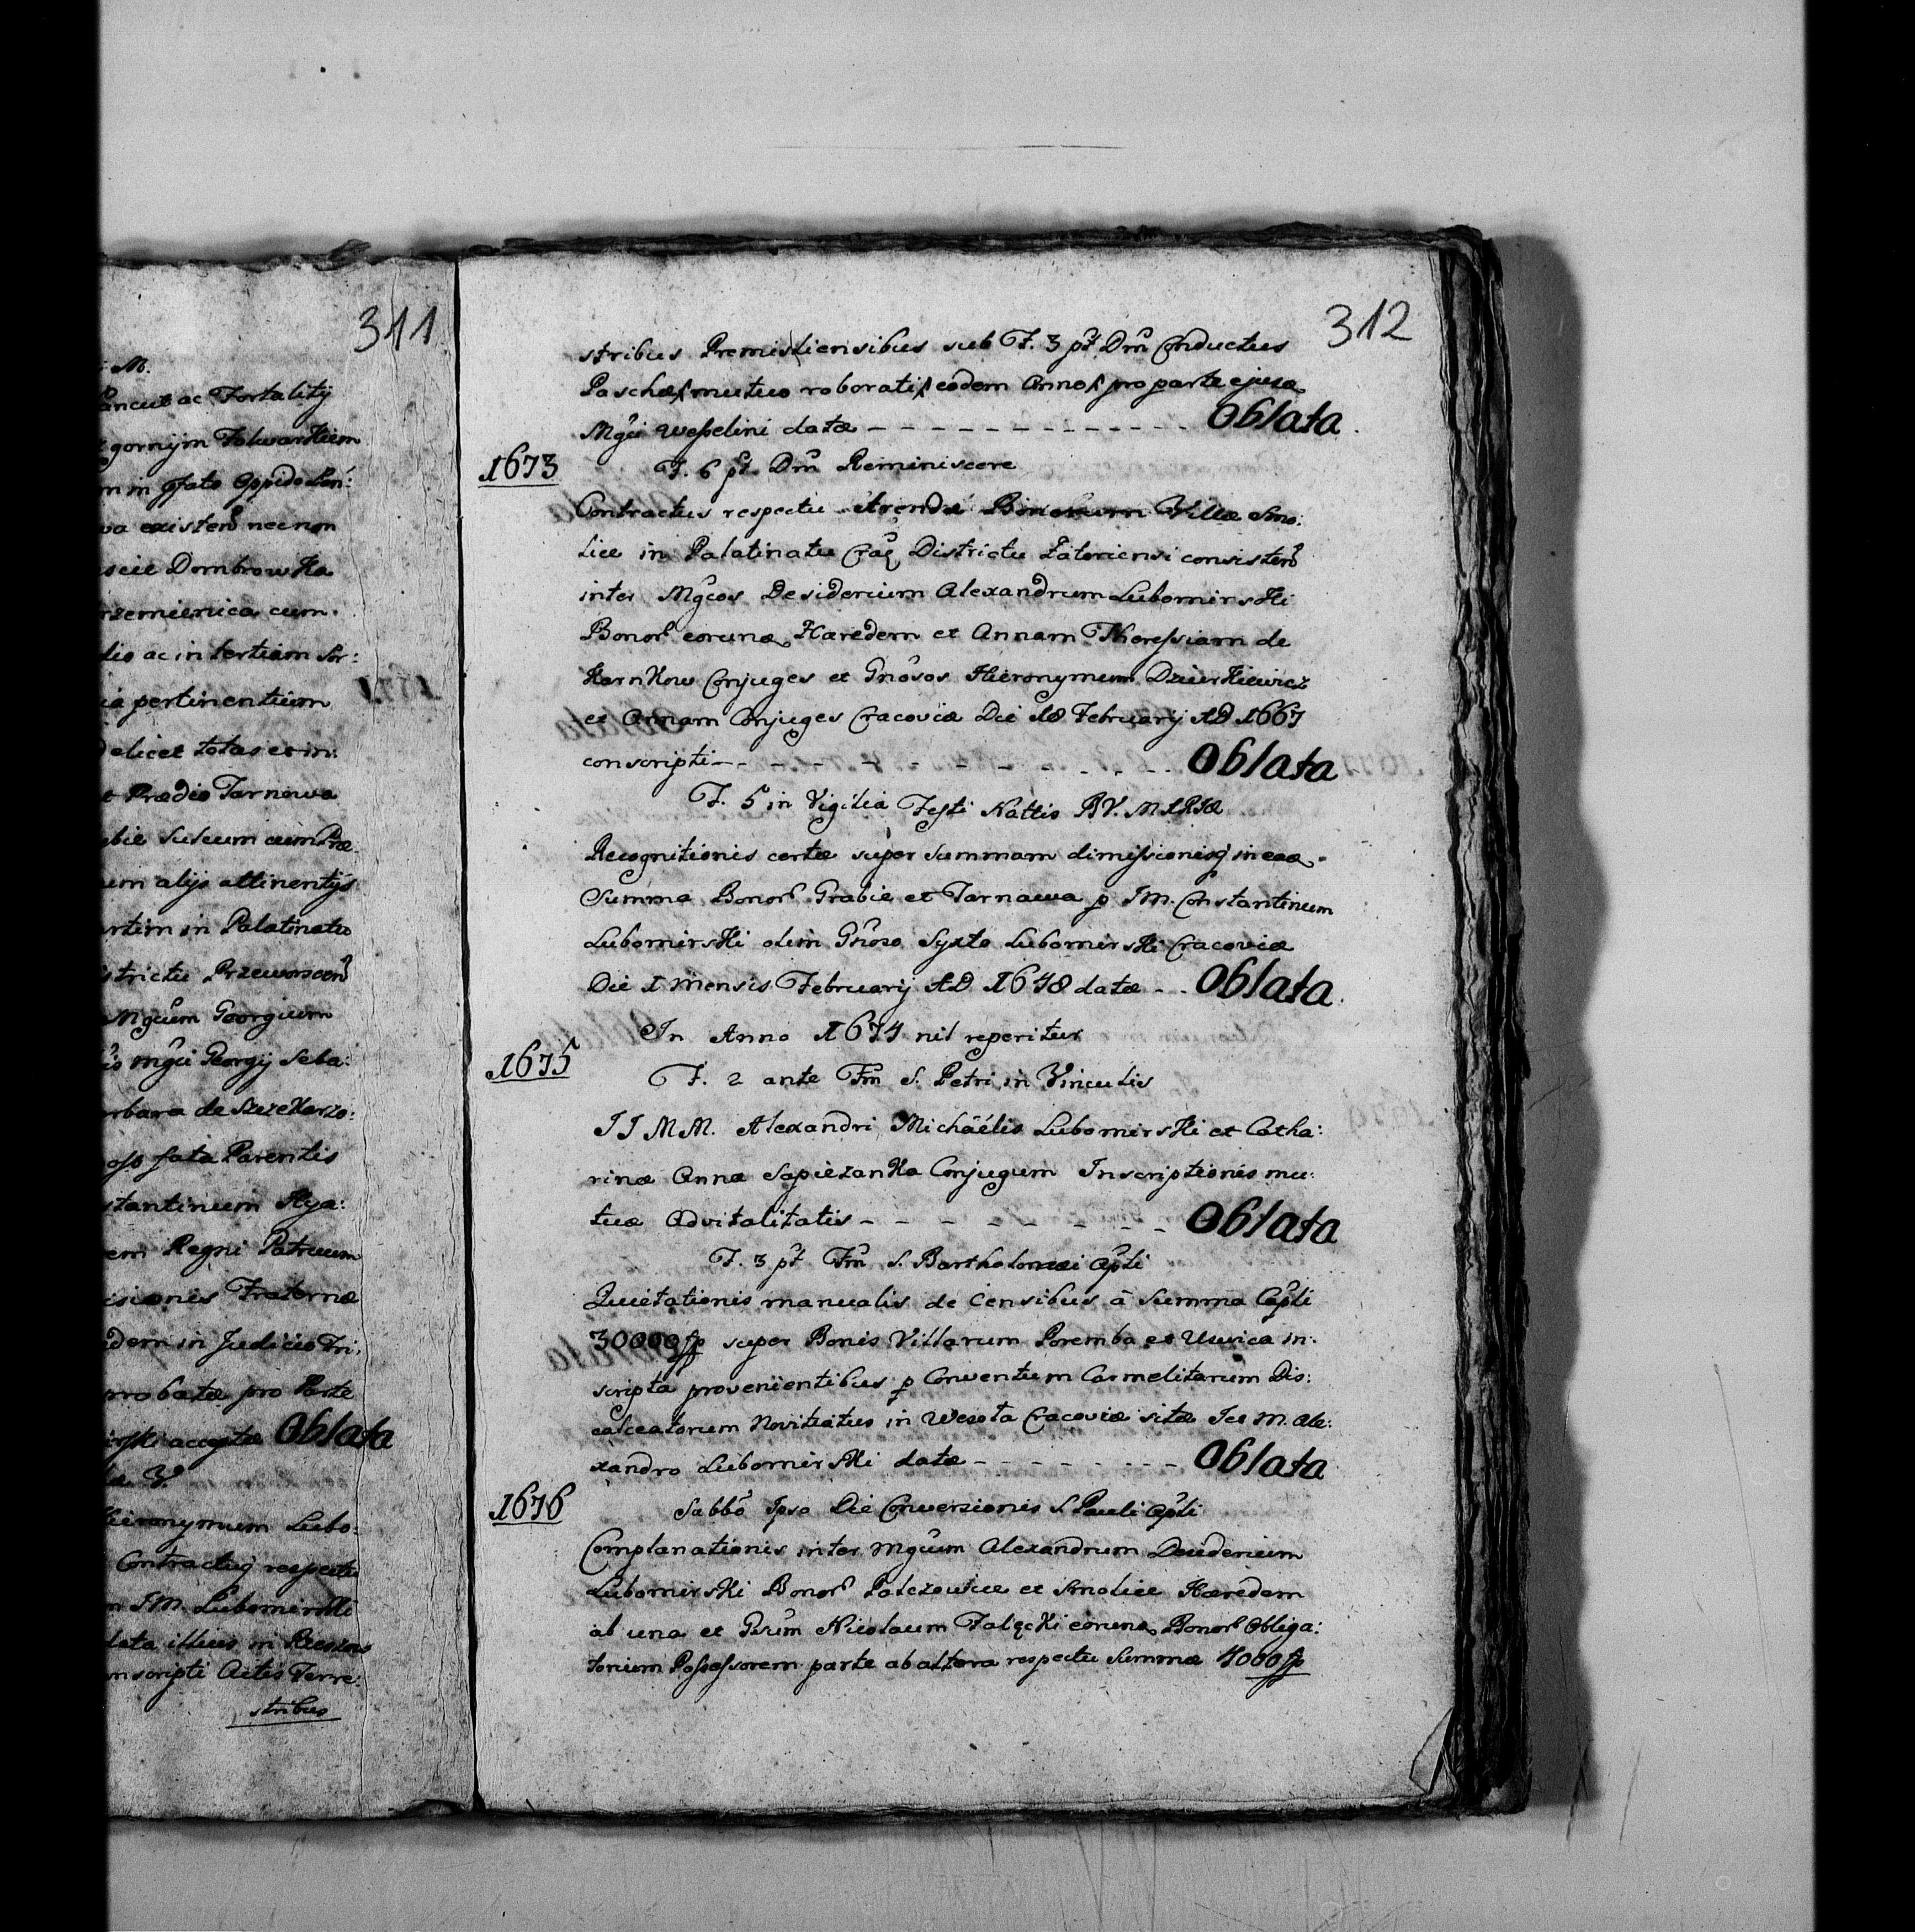 311
: M.
ancut ac Fortalitij
gornym Folwarkiem
m in pfato Oppido Lan:
va existen necnon
scie Dombrowka
rzemienica cum
dio ac in tertiam Sor:
ia pertinentium
delicet totas et in:
et Prædio Tarnowa
abie Suseum cum Præ
um alijs attinentijs
artim in Palatinatu
istrictu Przeworscen
Mgcum Georgium
is Mgci Georgij Seba:
rbara de Szczekarzo:
oso fata Parentis
stantinum Hya:
em Regni Patruum
isionis Fraternæ
dem in Judicio Tri:
probatæ pro Parte
irski acceptæ Oblata
læ V.
Hieronymum Lubo:
Contractus respectu
m IM. Lubomirski
data illius in Rzeszow
nscripti Actis Terre:
stribus
312
stribus Premisliensibus sub F. 3 pt Dm Conductus
Paschæ mutuo roborati eodem Anno pro parte ejusd
Mgci Wesselini datæ - - - - - - - - - - - - Oblata.
1673 F. 6 pt. Dm Reminiscere
Contractus respectu Arendæ Bonorum Villæ Smo:
lice in Palatinatu Crac Districtu Zatoriensi consisten
inter Mgcos Desiderium Alexandrum Lubomirski
Bonor eorund Hæredem et Annam Theressiam de
Karnkow Conjuges et Gnosos Hieronymum Dzierkiewicz
et Annam Conjuges Cracoviæ Die 18 Februarij AD 1667
conscripti - - - - - - - - - - - Oblata
F. 5 in Vigilia Festi Nattis B.V. MARIÆ
Recognitionis certæ super Summam dimissionisq in ead
Summa Bonor Grabie et Tarnawa p IM. Constantinum
Lubomirski olim Gnoso Syxto Lubomirski Cracoviæ
Die 1 mensis Februarij AD 1648 datæ - - Oblata.
In Anno 1674 nil reperitur
1675 F. 2 ante Fm S. Petri in Vinculis
IIMM. Alexandri Michäelis Lubomirski et Catha:
rinæ Annæ Sapiezanka Conjugum Inscriptionis mu:
tuæ Advitalitatis - - - - - - - - Oblata
F. 3 pt Fm S. Bartholomæi Apli
Quietationis manualis de Censibus â Summa Capli
30000 fp super Bonis Villarum Poremba et Uwica in:
scripta provenientibus p Conventum Carmelitarum Dis:
calceatorum Novitiatus in Wesoła Cracoviæ sitæ Ice M. Ale:
xandro Lubomirski datæ - - - - - - - - Oblata
1676 Sabbo Ipso Die Conversionis S. Pauli Apli
Complanationis inter Mgcum Alexandrum Desiderium
Lubomirski Bonor Palczowice et Smolice Hæredem
ab una et Gsum Nicolaum Falęcki eorund Bonor Obliga:
torium Possessorem parte ab altera respectu Summæ 4000 fp